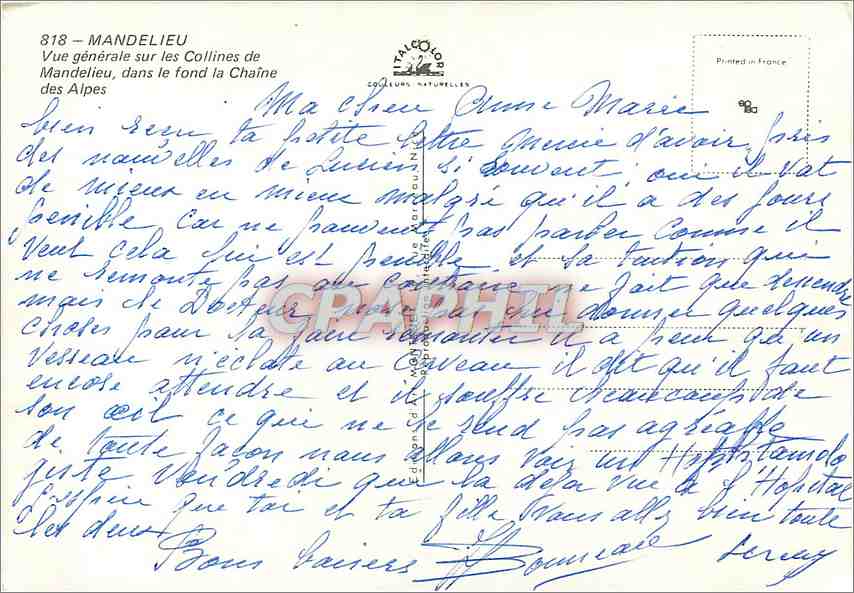 818 – MANDELIEU
Vue générale sur les Collines de
Mandelieu, dans le fond la Chaîne
des Alpes
ITALCOLOR
COULEURS NATURELLES
Printed in France
Ma chere Anne Marie
bien reçu ta petite lettre d'avoir pris
des nouvelles de Lucien si souvent, oui il vat
de mieux en mieux malgré qu'il a des jours
penible car ne pas parler comme il
veut cela lui est penible et sa tention qui
ne remonte pas au contraire ne fait que dessendre
mais le Docteur donner quelques
choses pour la faire remonter il a peur qu un
vesseau n'eclate au cerveau il dit qu'il faut
encore attendre et il souffre beaucoup de
son œil ce qui ne le rend pas agréable
de toute façon nous allons voir un
giste Vendredi qui la deja vue a l'Hopital
j'espère que toi et ta fille vous allez bien toute
les deux
Bons baisers
CPARPHIL
Edition d'Art